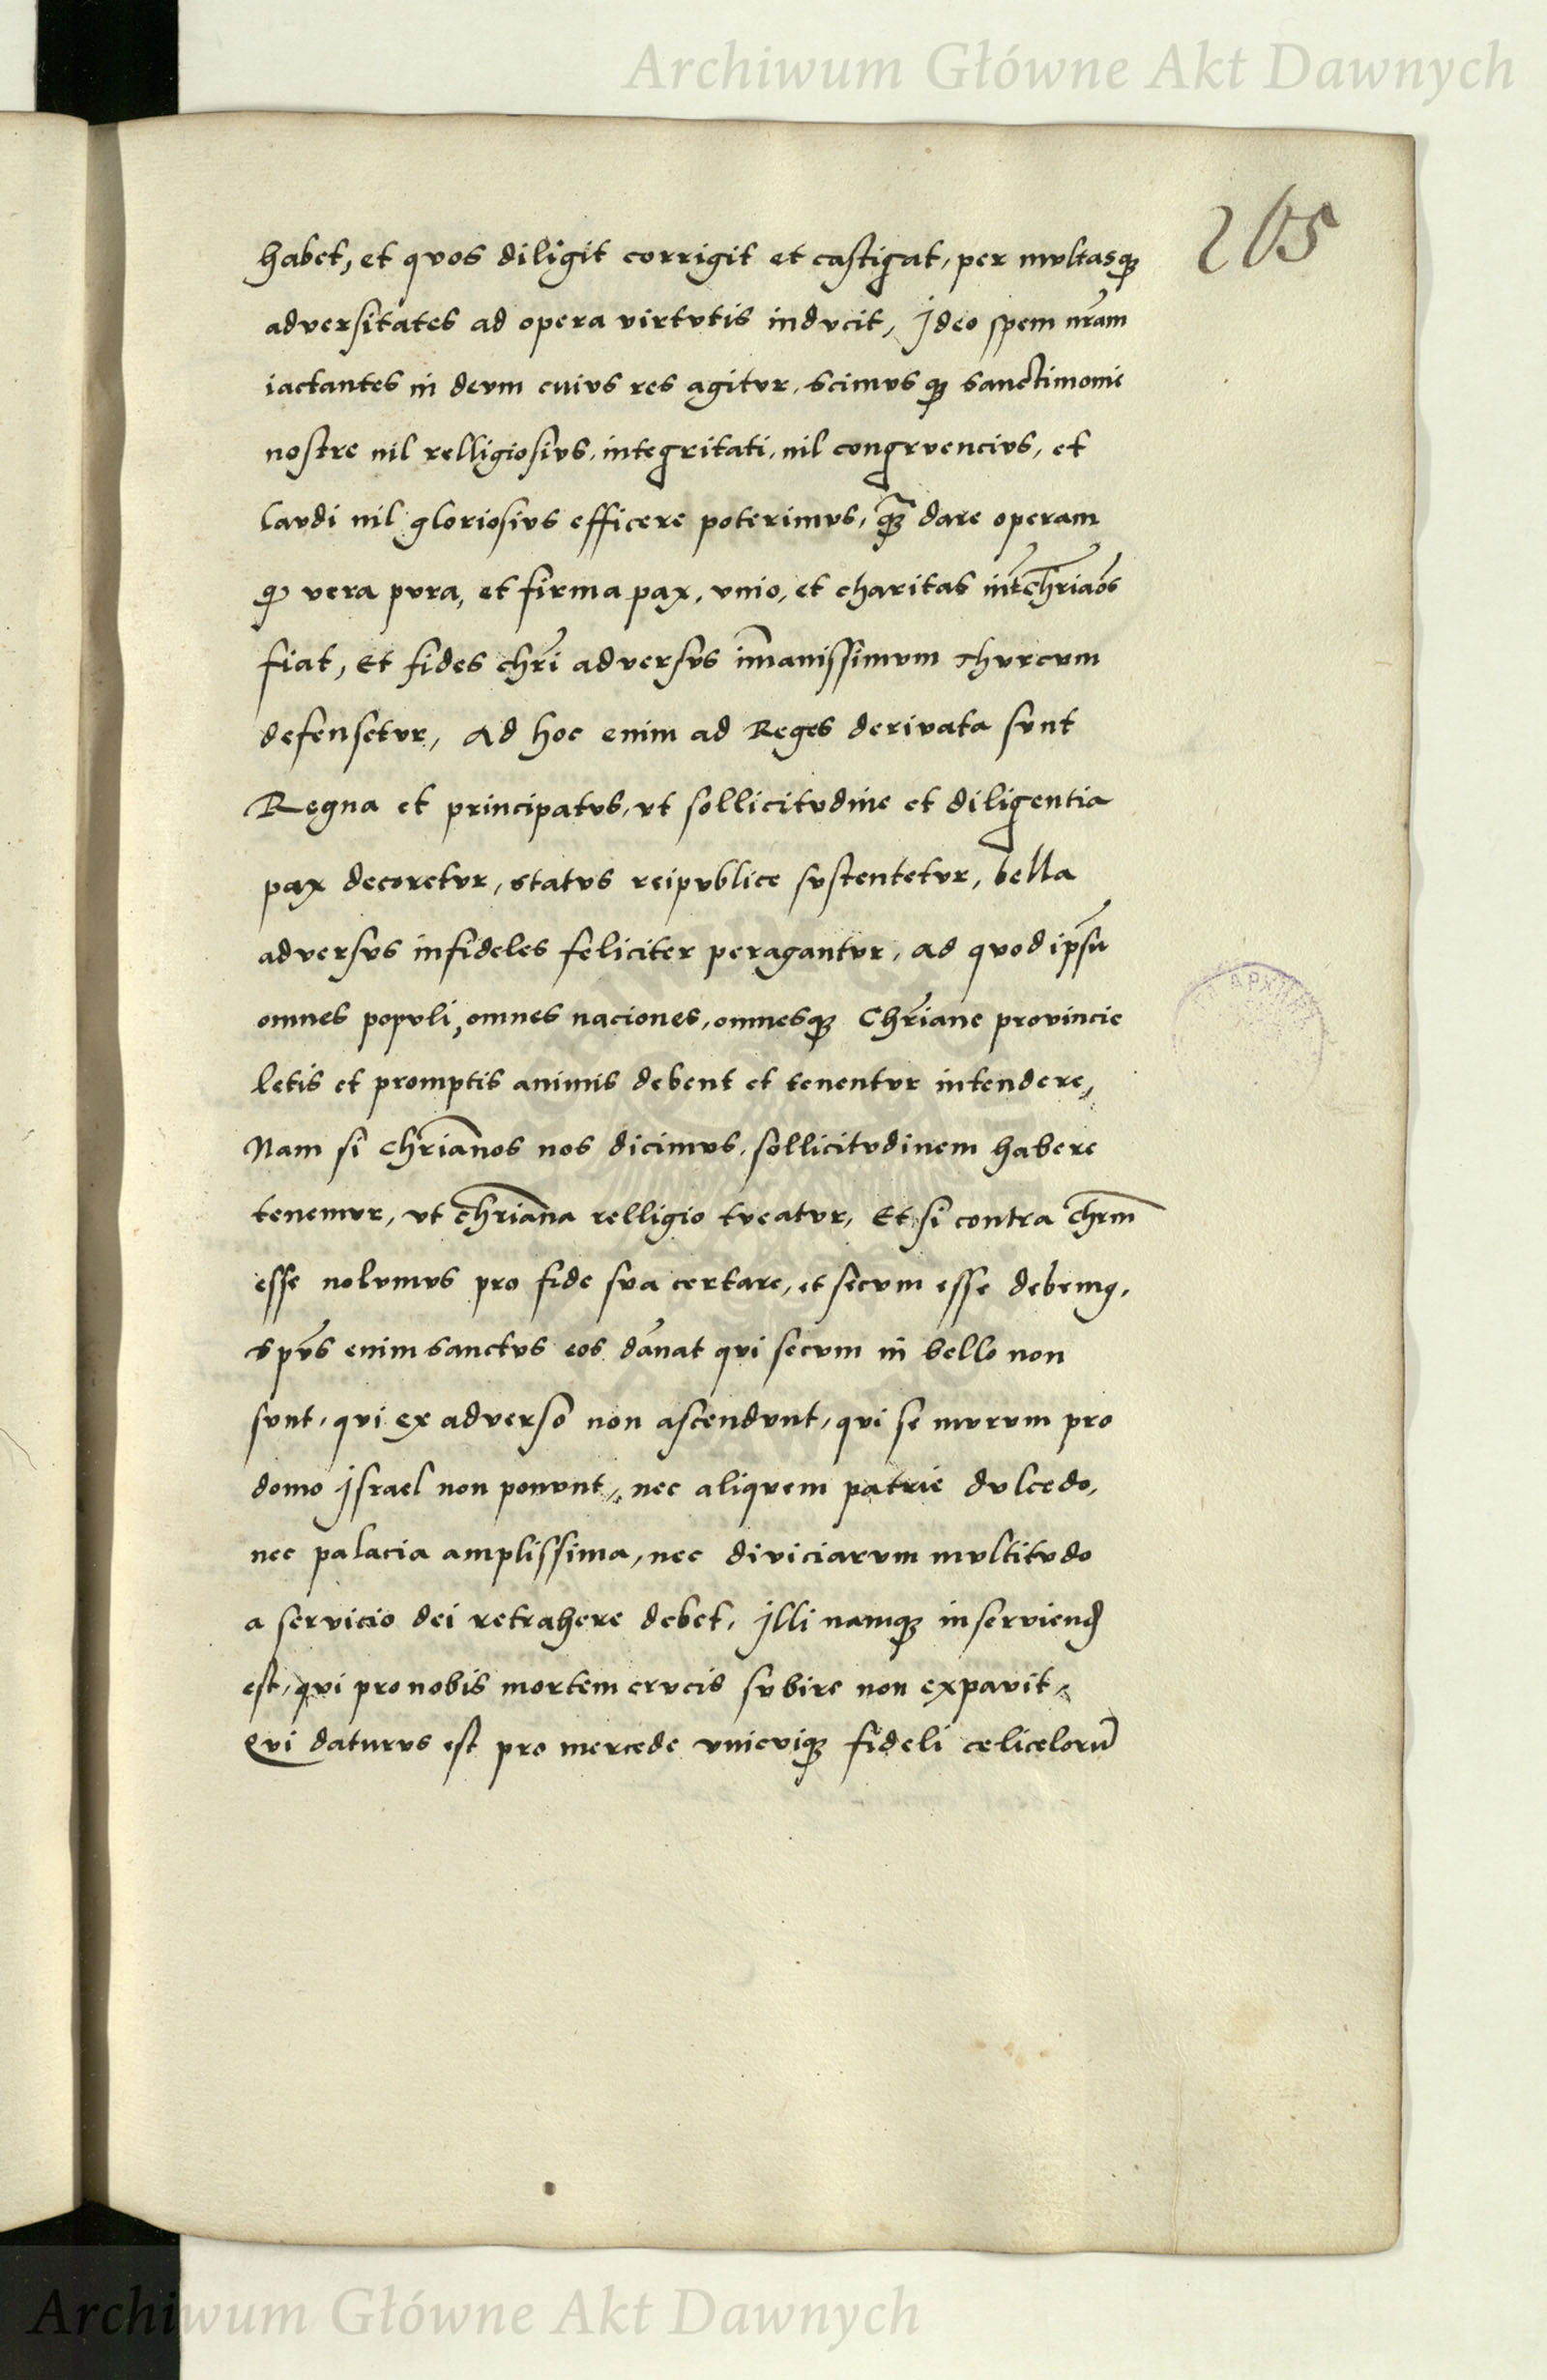 Archiwum Główne Akt Dawnych
265
habet, et quos diligit corrigit et castigat, per multasq3
adversitates ad opera virtutis inducit, Ideo spem nr̃am
iactantes in deum cuius res agitur, scimus q3 sanctimonie
nostre nil relligiosius, integritati, nil congruencius, et
laudi nil gloriosius efficere poterimus, q̃3 dare operam
q vera pura, et firma pax, unio, et charitas int̃ chr̃iaõs
fiat, Et fides chr̃i adversus im̃anissimum Thurcum
defensetur, Ad hoc enim ad Reges derivata sunt
Regna et principatus, ut sollicitudine et diligentia
pax decoretur, status reipublice sustentetur, bella
adversus infideles feliciter peragantur, ad quod ipsũ
omnes populi, omnes naciones, omnesq3 Chr̃iane provincie
letis et promptis animis debent et tenentur intendere,
Nam si chr̃ianos nos dicimus, sollicitudinem habere
tenemur, ut chr̃iana relligio tueatur, Et si contra chr̃m
esse nolumus pro fide sua certare, et secum esse debem9,
sp̃us enim sanctus eos dãnat qui secum in bello non
sunt, qui ex adverso non ascendunt, qui se murum pro
domo Israel non ponunt, nec aliquem patrie dulcedo,
nec palacia amplissima, nec diviciarum multitudo
a servicio dei retrahere debet, Illi namq3 inserviend
est, qui pro nobis mortem crucis subire non expavit,
Qui daturus est pro mercede unicuiq3 fideli celicelorũ
Archiwum Główne Akt Dawnych